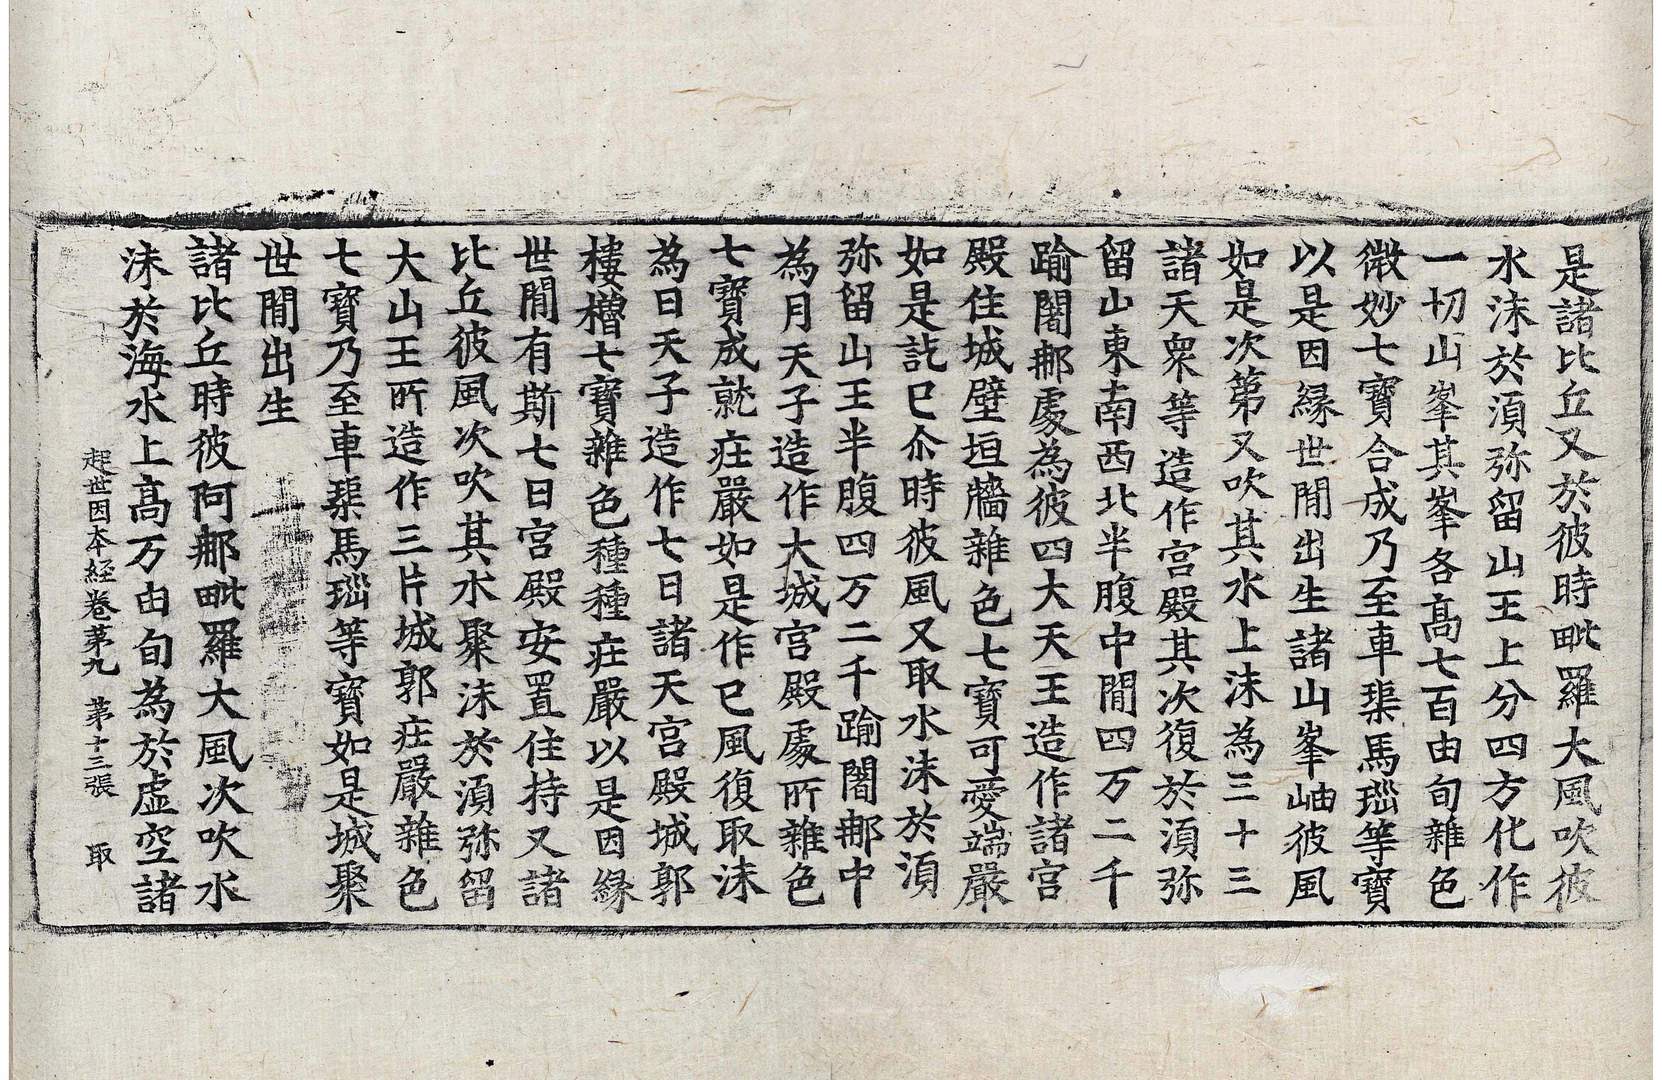 是諸比丘又於彼時毗羅大風吹彼
水沫於須弥留山王上分四方化作
一切山峯其峯各高七百由旬雜色
微妙七寶合成乃至車𤦲馬瑙等寶
以是因縁世閒出生諸山峯岫彼風
如是次第又吹其水上沫為三十三
諸天衆等造作宮殿其次復於須弥
留山東南西北半腹中閒四万二千
踰闍郍處為彼四大天王造作諸宮
殿住城壁垣牆雜色七寶可愛端嚴
如是訖已尒時彼風又取水沫於須
弥留山王半腹四万二千踰闍郍中
為月天子造作大城宮殿處所雜色
七寶成就疘嚴如是作已風復取沫
為日天子造作七日諸天宮殿城郭
樓櫓七寶雜色種種疘嚴以是因縁
世閒有斯七日宮殿安置住持又諸
比丘彼風次吹其水聚沫於須弥留
大山王所造作三片城郭疘嚴雜色
七寶乃至車𤦲馬瑙等寶如是城聚
世閒出生
諸比丘時彼阿郍毗羅大風次吹水
沫於海水上高万由旬為於虛空諸
起世因本経卷苐九 苐十三張 取